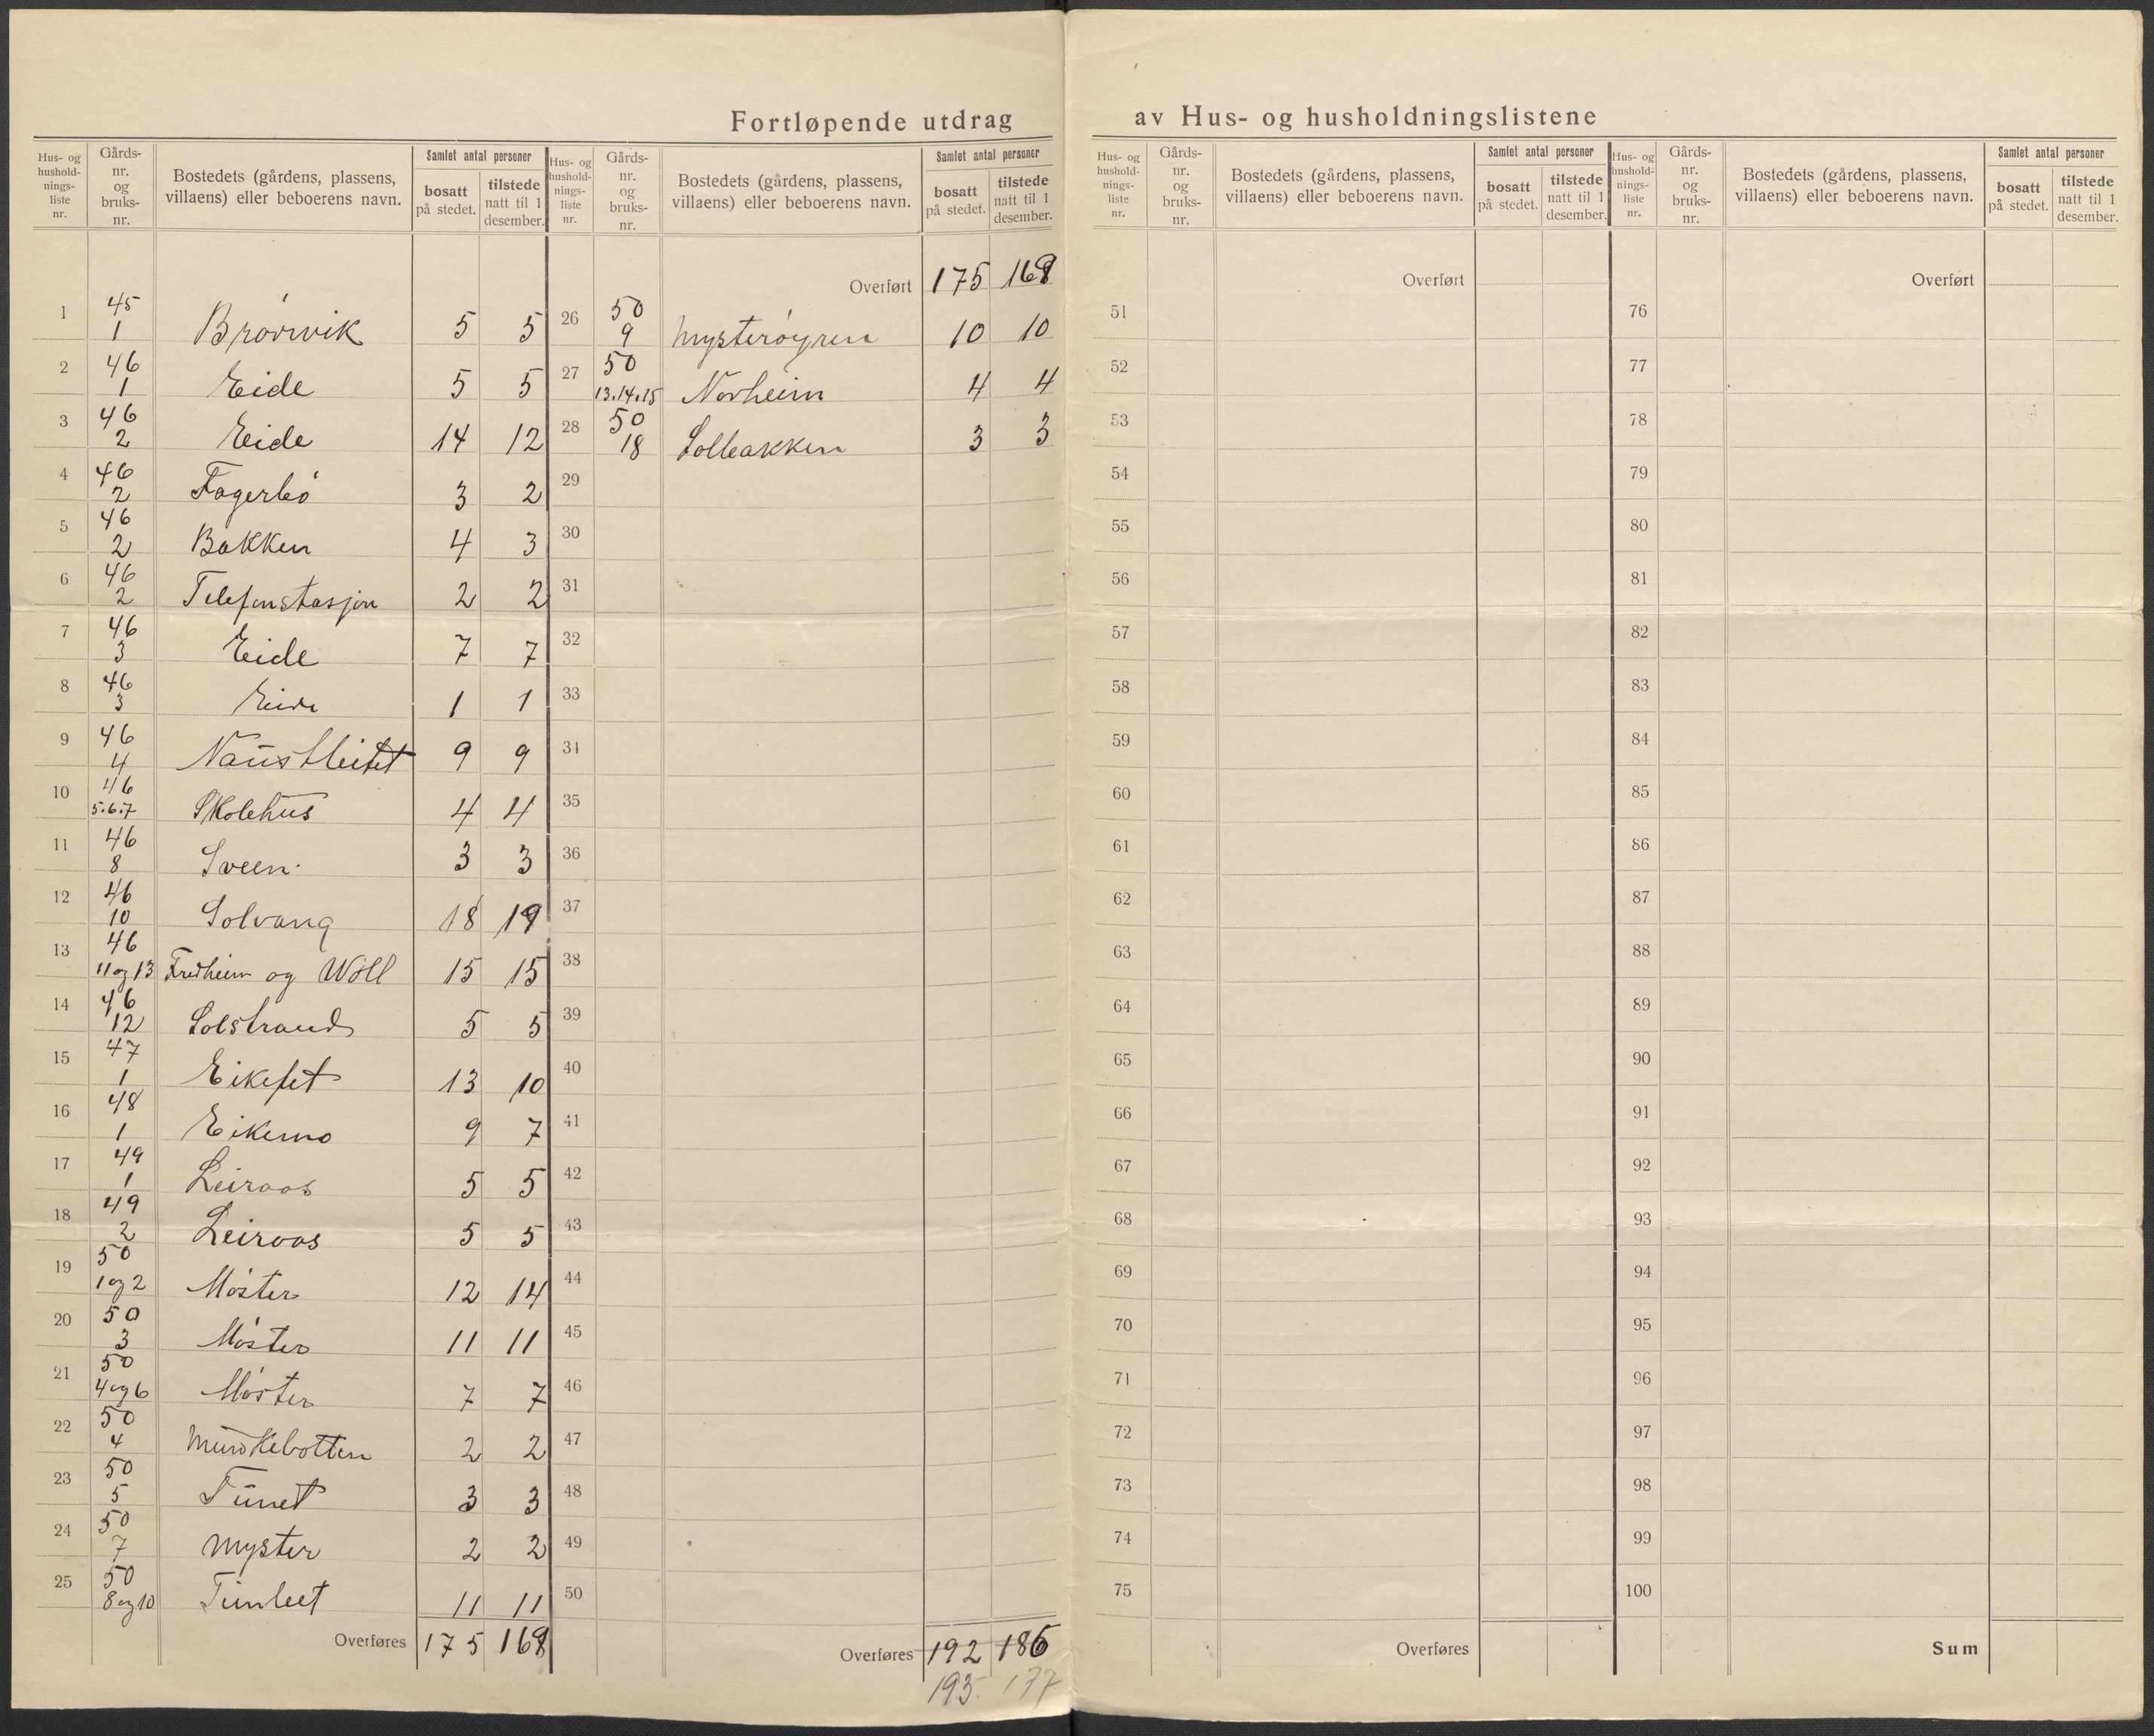 Fortløpende utdrag av Hus- og husholdningslistene
Hus- og hushold- nings- liste nr. | Gårds- nr. og bruks- nr. | Bostedets (gårdens, plassens, villaens) eller beboerens navn. | Samlet antal personer | bosatt på stedet. | tilstede natt til 1 desember.
1 | 45 1 | Brørvik | 5 | 5
2 | 46 1 | Eide | 5 | 5
3 | 46 2 | Eide | 14 | 12
4 | 46 2 | Fagerbø | 3 | 2
5 | 46 2 | Bakken | 4 | 3
6 | 46 2 | Telefonstasjon | 2 | 2
7 | 46 3 | Eide | 7 | 7
8 | 46 3 | Eide | 1 | 1
9 | 46 4 | Naustleitet | 9 | 9
10 | 46 5.6.7 | Skolehus | 4 | 4
11 | 46 8 | Sveen | 3 | 3
12 | 46 10 | Solvang | 18 | 19
13 | 46 11 og 13 | Fredheim og Woll | 15 | 15
14 | 46 12 | Solstrand | 5 | 5
15 | 47 1 | Eikefet | 13 | 10
16 | 48 1 | Eikemo | 9 | 7
17 | 49 1 | Leiraas | 5 | 5
18 | 49 2 | Leiraas | 5 | 5
19 | 50 1 og 2 | Møster | 12 | 14
20 | 50 3 | Møster | 11 | 11
21 | 50 4 og 6 | Møster | 7 | 7
22 | 50 4 | Munkebotten | 2 | 2
23 | 50 5 | Tunet | 3 | 3
24 | 50 7 | Myster | 2 | 2
25 | 50 8 og 10 | 11 | 11
Overføres | 175 | 168
Hus- og hushold- nings- liste nr. | Gårds- nr. og bruks- nr. | Bostedets (gårdens, plassens, villaens) eller beboerens navn. | Samlet antal personer | bosatt på stedet. | tilstede natt til 1 desember.
Overført | 175 | 168
26 | 50 9 | Mysterøyren | 10 | 10
27 | 50 13.14.15 | Norheim | 4 | 4
28 | 50 18 | Solbakken | 3 | 3
29
30
31
32
33
34
35
36
37
38
39
40
41
42
43
44
45
46
47
48
49
50
Overføres | 192 | 186
193 177
Hus- og hushold- nings- liste nr. | Gårds- nr. og bruks- nr. | Bostedets (gårdens, plassens, villaens) eller beboerens navn. | Samlet antal personer | bosatt på stedet. | tilstede natt til 1 desember.
Overført
51
52
53
54
55
56
57
58
59
60
61
62
63
64
65
66
67
68
69
70
71
72
73
74
75
Overføres
Hus- og hushold- nings- liste nr. | Gårds- nr. og bruks- nr. | Bostedets (gårdens, plassens, villaens) eller beboerens navn. | Samlet antal personer | bosatt på stedet. | tilstede natt til 1 desember.
Overført
76
77
78
79
80
81
82
83
84
85
86
87
88
89
90
91
92
93
94
95
96
97
98
99
100
Sum